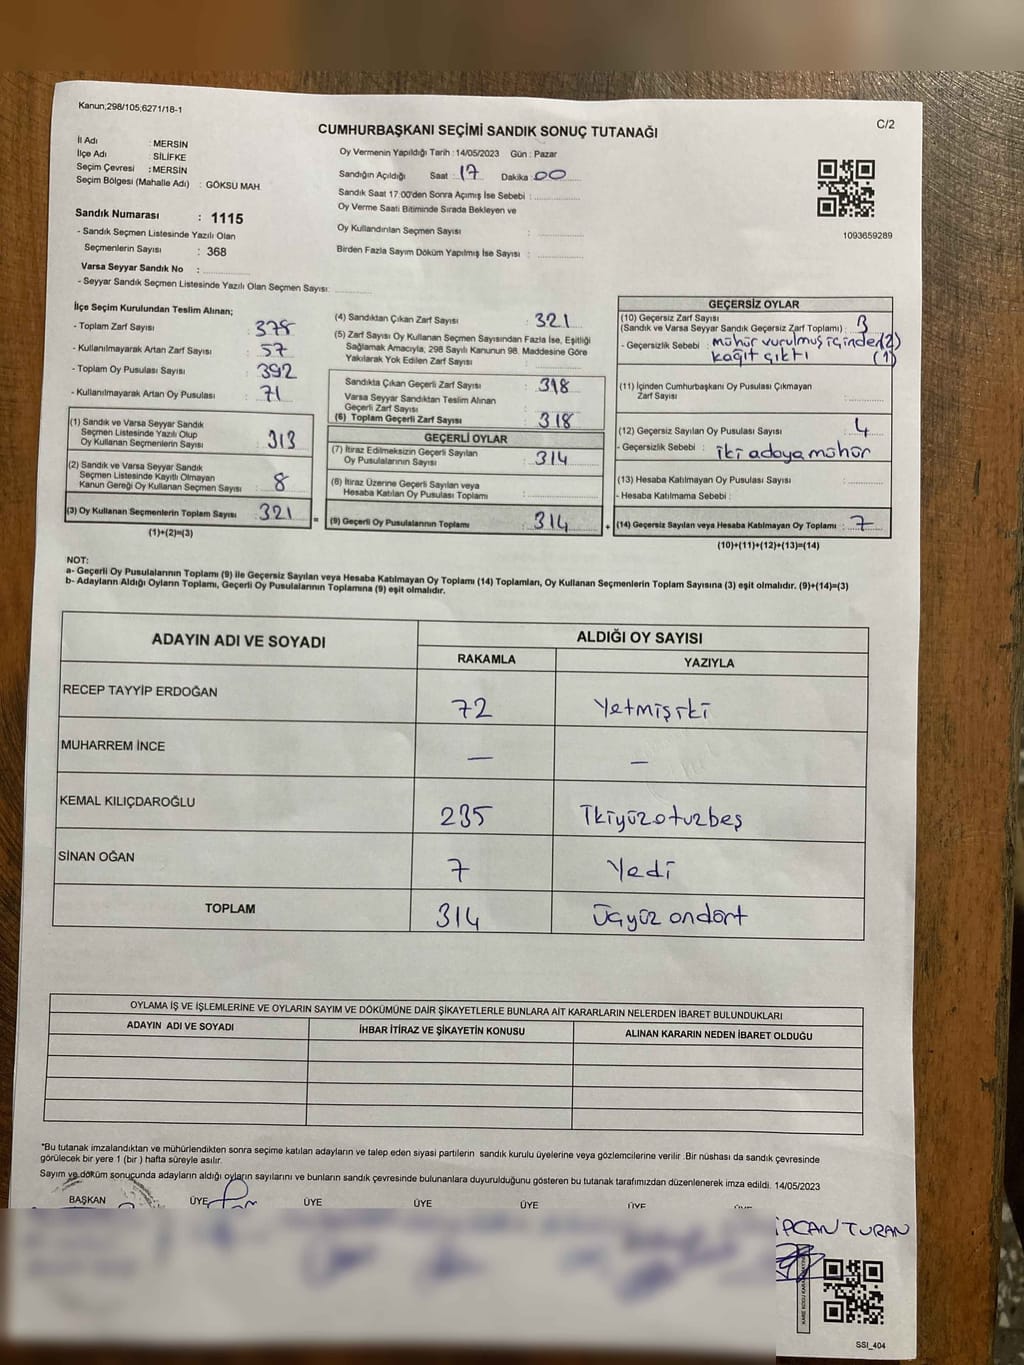 Kanun;298/105,6271/18-1
C/2
CUMHURBAŞKANI SEÇİMİ SANDIK SONUÇ TUTANAĞI
İl Adı : MERSİN
İlçe Adı : SİLİFKE
Seçim Çevresi : MERSİN
Seçim Bölgesi (Mahalle Adı) : GÖKSU MAH.
Sandık Numarası : 1115
- Sandık Seçmen Listesinde Yazılı Olan
Seçmenlerin Sayısı : 368
Varsa Seyyar Sandık No :
- Seyyar Sandık Seçmen Listesinde Yazılı Olan Seçmen Sayısı:
Oy Vermenin Yapıldığı Tarih : 14/05/2023 Gün : Pazar
Sandığın Açıldığı Saat : 17 Dakika : 00
Sandık Saat 17.00'den Sonra Açımış İse Sebebi :
Oy Verme Saati Bitiminde Sırada Bekleyen ve
Oy Kullandırılan Seçmen Sayısı :
Birden Fazla Sayım Döküm Yapılmış İse Sayısı :
1093659289
İlçe Seçim Kurulundan Teslim Alınan;
- Toplam Zarf Sayısı : 378
- Kullanılmayarak Artan Zarf Sayısı : 57
- Toplam Oy Pusulası Sayısı : 392
- Kullanılmayarak Artan Oy Pusulası : 71
(1) Sandık ve Varsa Seyyar Sandık
Seçmen Listesinde Yazılı Olup
Oy Kullanan Seçmenlerin Sayısı : 313
(2) Sandık ve Varsa Seyyar Sandık
Seçmen Listesinde Kayıtlı Olmayan
Kanun Gereği Oy Kullanan Seçmen Sayısı : 8
(3) Oy Kullanan Seçmenlerin Toplam Sayısı : 321
(1)+(2)=(3)
(4) Sandıktan Çıkan Zarf Sayısı : 321
(5) Zarf Sayısı Oy Kullanan Seçmen Sayısından Fazla İse, Eşitliği
Sağlamak Amacıyla, 298 Sayılı Kanunun 98. Maddesine Göre
Yakılarak Yok Edilen Zarf Sayısı :
Sandıkta Çıkan Geçerli Zarf Sayısı : 318
Varsa Seyyar Sandıktan Teslim Alınan
Geçerli Zarf Sayısı :
(6) Toplam Geçerli Zarf Sayısı : 318
GEÇERLİ OYLAR
(7) İtiraz Edilmeksizin Geçerli Sayılan
Oy Pusulalarının Sayısı : 314
(8) İtiraz Üzerine Geçerli Sayılan veya
Hesaba Katılan Oy Pusulası Toplamı :
= (9) Geçerli Oy Pusulalarının Toplamı : 314 +
GEÇERSİZ OYLAR
(10) Geçersiz Zarf Sayısı
(Sandık ve Varsa Seyyar Sandık Geçersiz Zarf Toplamı) : 3
- Geçersizlik Sebebi : mühür vurulmuş içinden (2)
kağıt çıktı (1)
(11) İçinden Cumhurbaşkanı Oy Pusulası Çıkmayan
Zarf Sayısı :
(12) Geçersiz Sayılan Oy Pusulası Sayısı : 4
- Geçersizlik Sebebi : iki adaya mühür
(13) Hesaba Katılmayan Oy Pusulası Sayısı :
- Hesaba Katılmama Sebebi :
(14) Geçersiz Sayılan veya Hesaba Katılmayan Oy Toplamı : 7
(10)+(11)+(12)+(13)=(14)
NOT:
a- Geçerli Oy Pusulalarının Toplamı (9) ile Geçersiz Sayılan veya Hesaba Katılmayan Oy Toplamı (14) Toplamları, Oy Kullanan Seçmenlerin Toplam Sayısına (3) eşit olmalıdır. (9)+(14)=(3)
b- Adayların Aldığı Oyların Toplamı, Geçerli Oy Pusulalarının Toplamına (9) eşit olmalıdır.
ADAYIN ADI VE SOYADI ALDIĞI OY SAYISI
RAKAMLA YAZIYLA
RECEP TAYYİP ERDOĞAN 72 Yetmişiki
MUHARREM İNCE — —
KEMAL KILIÇDAROĞLU 235 İkiyüzotuzbeş
SİNAN OĞAN 7 Yedi
TOPLAM 314 Üçyüz ondört
OYLAMA İŞ VE İŞLEMLERİNE VE OYLARIN SAYIM VE DÖKÜMÜNE DAİR ŞİKAYETLERLE BUNLARA AİT KARARLARIN NELERDEN İBARET BULUNDUKLARI
ADAYIN ADI VE SOYADI İHBAR İTİRAZ VE ŞİKAYETİN KONUSU ALINAN KARARIN NEDEN İBARET OLDUĞU
*Bu tutanak imzalandıktan ve mühürlendikten sonra seçime katılan adayların ve talep eden siyasi partilerin sandık kurulu üyelerine veya gözlemcilerine verilir .Bir nüshası da sandık çevresinde
görülecek bir yere 1 (bir ) hafta süreyle asılır.
Sayım ve döküm sonucunda adayların aldığı oyların sayılarını ve bunların sandık çevresinde bulunanlara duyurulduğunu gösteren bu tutanak tarafımızdan düzenlenerek imza edildi. 14/05/2023
BAŞKAN ÜYE ÜYE ÜYE ÜYE ÜYE
TURAN
SSI_404